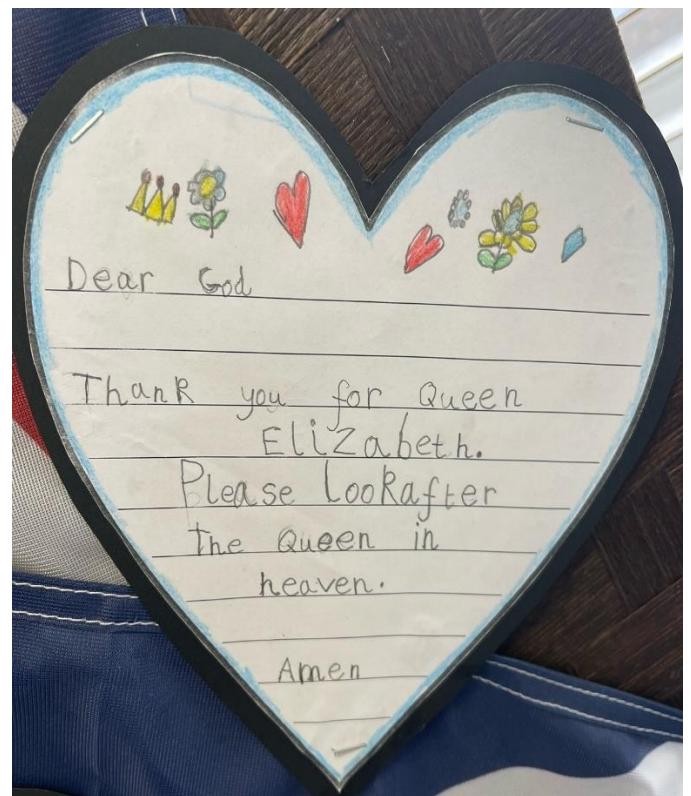 Dear God
Thank you for Queen
Elizabeth.
Please Lookafter
The Queen in
heaven.
Amen